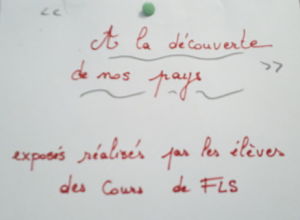 « A la découverte
de nos pays »
exposés réalisés par les élèves
des Cours de FLS